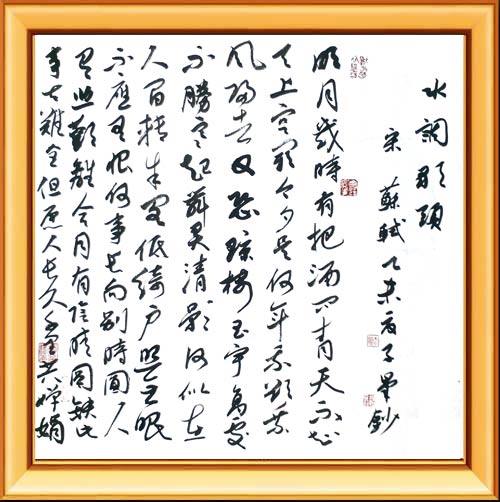 水調歌頭
宋 蘇軾 乙未夏子墨鈔
明月幾時有把酒問青天不知
天上宮闕今夕是何年我欲乘
風歸去又恐瓊樓玉宇高處
不勝寒起舞弄清影何似在
人間轉朱閣低綺戶照無眠
不應有恨何事長向別時圓人
有悲歡離合月有陰晴圓缺此
事古難全但願人長久千里共嬋娟